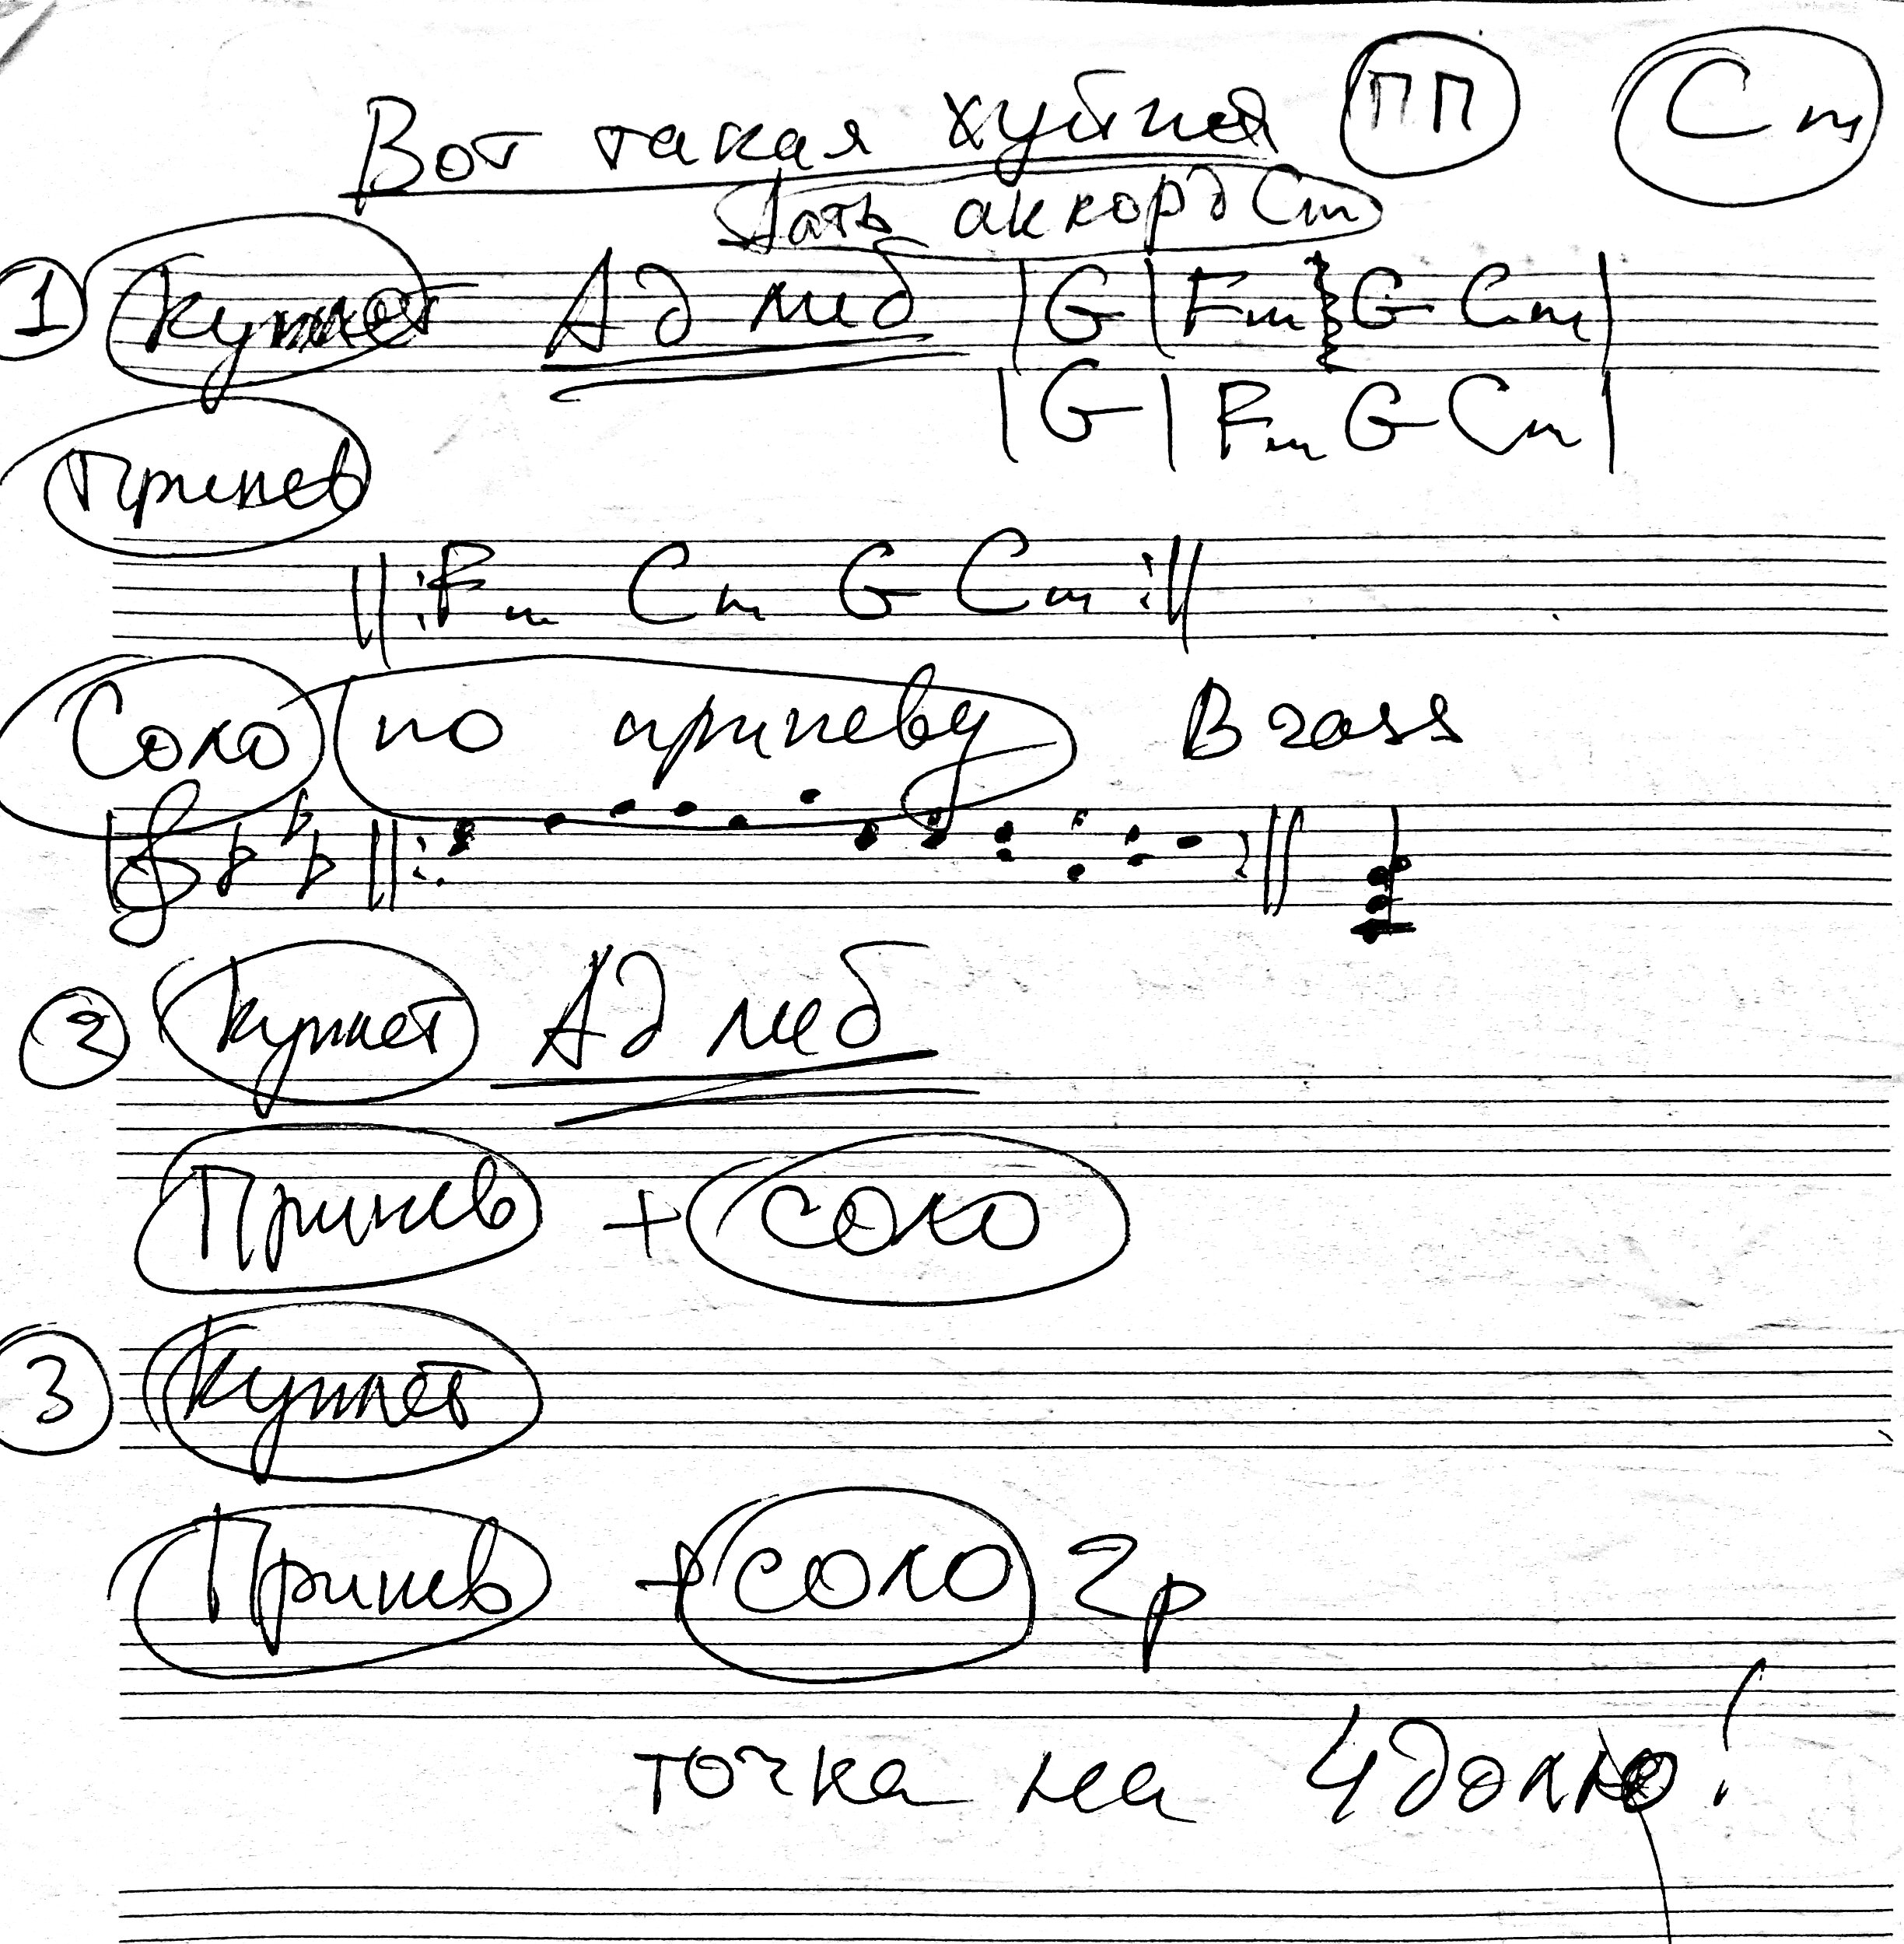 Вот такая хуйня ПП Cm
Дать аккорд Cm
1 Куплет Ад либ | G | Fm G Cm |
| G | Fm G Cm |
Припев
||: Fm Cm G Cm :||
Соло по припеву Brass
2 Куплет Ад либ
Припев + соло
3 Куплет
Припев + соло 2р
точка на 4 долю!